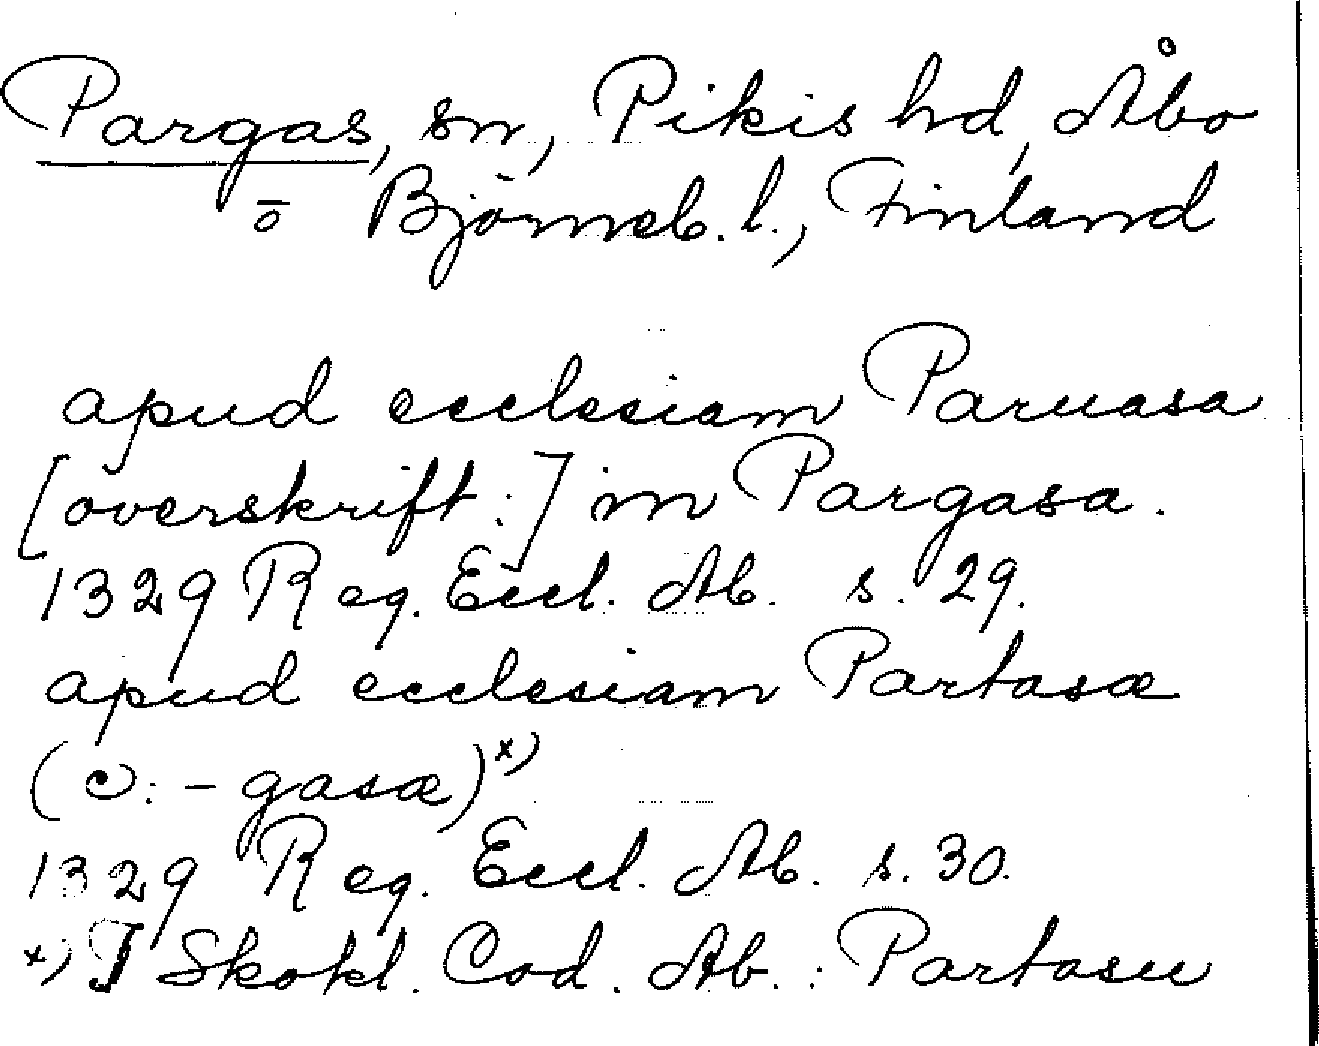 Pargas, sn, Pikis hd, Åbo
o Björneb. l., Finland
apud ecclesiam Paruasa
[överskrift:] in Pargasa.
1329 Reg. Eccl. Ab. s. 29.
apud ecclesiam Partasæ
(ɔ: -gasæ)ˣ⁾
1329 Reg. Eccl. Ab. s. 30.
x) I Skokl. Cod. Ab.: Partasu